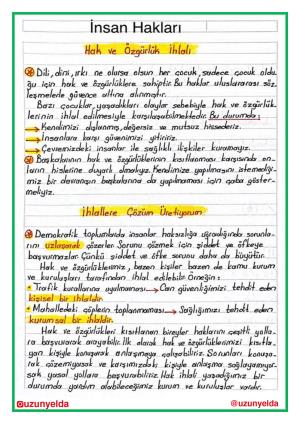 İnsan Hakları
Hak ve Özgürlük İhlali
Dili, dini, ırkı ne olursa olsun her çocuk, sadece çocuk oldu
ğu için hak ve özgürlüklere sahiptir. Bu haklar uluslararası söz
leşmelerle güvence altına alınmıştır.
Bazı çocuklar, yaşadıkları olaylar sebebiyle hak ve özgürlük-
lerinin ihlal edilmesiyle karşılaşabilmektedir. Bu durumda;
Kendimizi dışlanmış, değersiz ve mutsuz hissederiz.
İnsanlara karşı güvenimizi yitiririz.
Çevremizdeki insanlar ile sağlıklı ilişkiler kuramayız.
Başkalarının hak ve özgürlüklerinin kısıtlanması karşısında on-
ların hislerine duyarlı olmalıyız. Kendimize yapılmasını istemediği-
miz bir davranışın başkalarına da yapılmaması için çaba göster-
meliyiz.
İhlallere Çözüm Üretiyorum
Demokratik toplumlarda insanlar haksızlığa uğradığında sorunla-
rını uzlaşarak çözerler. Sorunu çözmek için şiddet ve öfkeye
başvurmazlar. Çünkü şiddet ve öfke sorunu daha da büyütür.
Hak ve özgürlüklerimiz, bazen kişiler bazen de kamu kurum
ve kuruluşları tarafından ihlal edilebilir. Örneğin;
• Trafik kurallarına uyulmaması → Can güvenliğimizi tehdit eden
kişisel bir ihlaldir.
• Mahalledeki çöplerin toplanmaması → Sağlığımızı tehdit eden
kurumsal bir ihlaldir.
Hak ve özgürlükleri kısıtlanan bireyler haklarını çeşitli yolla-
ra başvurarak arayabilir. İlk olarak hak ve özgürlüklerimizi kısıtla-
yan kişiyle konuşarak anlaşmaya çalışabiliriz. Sorunları konuşa-
rak çözemiyorsak ve karşımızdaki kişiyle anlaşma sağlayamıyor-
sak yasal yollara başvurabiliriz. Hak ihlali yaşadığımız bir
durumda yardım alabileceğimiz kurum ve kuruluşlar vardır.
@uzunyelda @uzunyelda